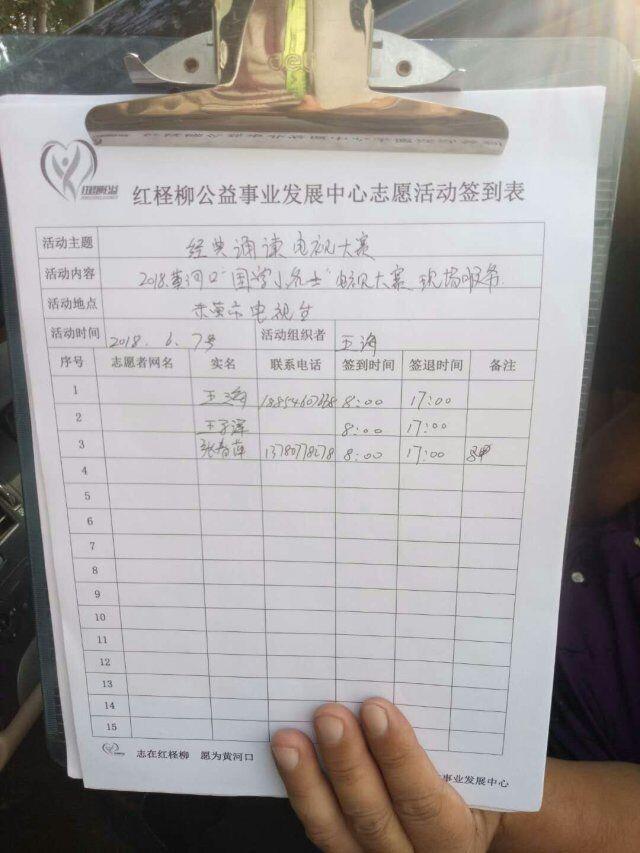 红柽柳公益事业发展中心志愿活动签到表
活动主题 经典诵读电视大赛
活动内容 2018.黄河口"国学小名士"电视大赛 现场服务.
活动地点 东营市电视台
活动时间 2018.6.7号 活动组织者 王海
序号 志愿者网名 实名 联系电话 签到时间 签退时间 备注
1 王海 8:00 17:00
2 8:00 17:00
3 张春萍 13780778278 8:00 17:00
4
5
6
7
8
9
10
11
12
13
14
15
志在红柽柳 愿为黄河口 事业发展中心